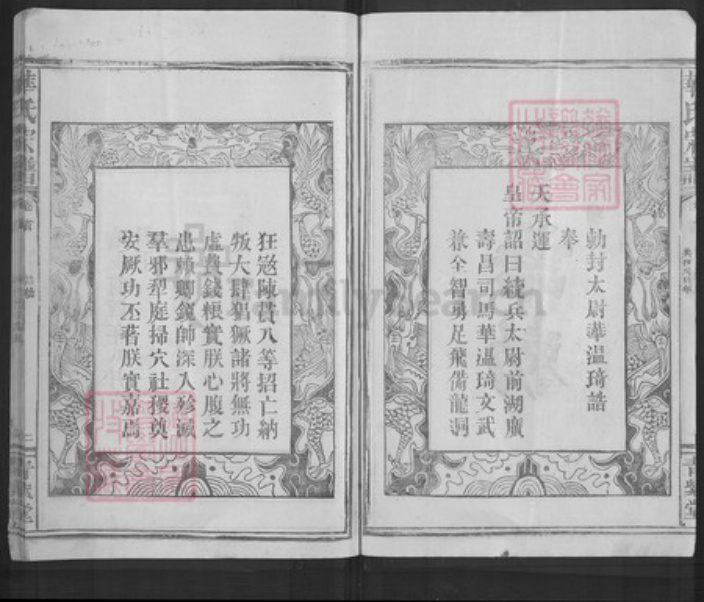 勅封太尉華溫琦誥
奉
天承運
皇帝詔曰統兵太尉前湖廣
壽昌司馬華溫琦文武
兼全智勇足飛備龍洞
狂寇陳貴八等招亡納
叛大肆猖獗諸將無功
虛費錢粮實朕心腹之
患賴卿銳師深入殄滅
羣邪犁庭掃穴社稷奠
安厥功丕著朕實嘉焉
華氏宗譜
卷首
華氏宗譜
familysearch